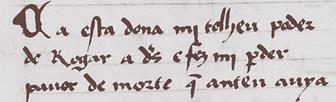 Ca esta dona mi tolheu poder
de Rogar a ds̃ e fez mi p̃der
pauor de morte q̃ anteu auya